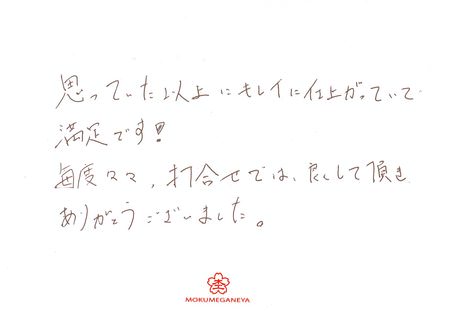 思っていた以上にキレイに仕上がっていて
満足です！
毎度々々、打合せでは、良くして頂き
ありがとうございました。
MOKUMEGANEYA